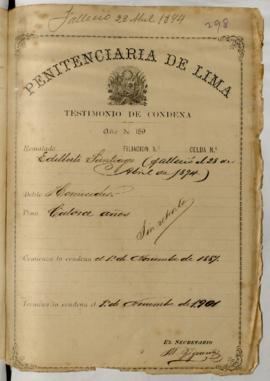 Falleció 28 Abril 1894
298
PENITENCIARIA DE LIMA
TESTIMONIO DE CONDENA
Año de 189
FILIACION N.º CELDA N.º
Rematado Edilberto Santiago (falleció el 28 de
Abril de 1894.)
Delito Homicidio
Pena Catorce años
Comienza la condena el 1º de Noviembre de 1887.
Termina la condena el 1º de Noviembre de 1901
EL SECRETARIO